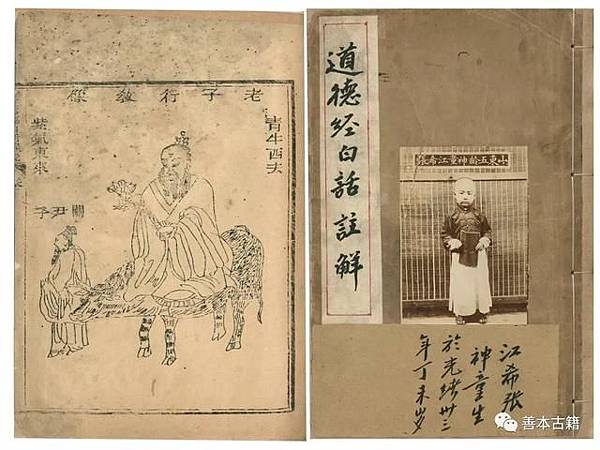 老子行教像
青牛西去
關尹子
紫氣東來
道德经白話註解
山東五齡神童江希張
江希张
神童生
於光绪卅三
年丁未岁
善本古籍